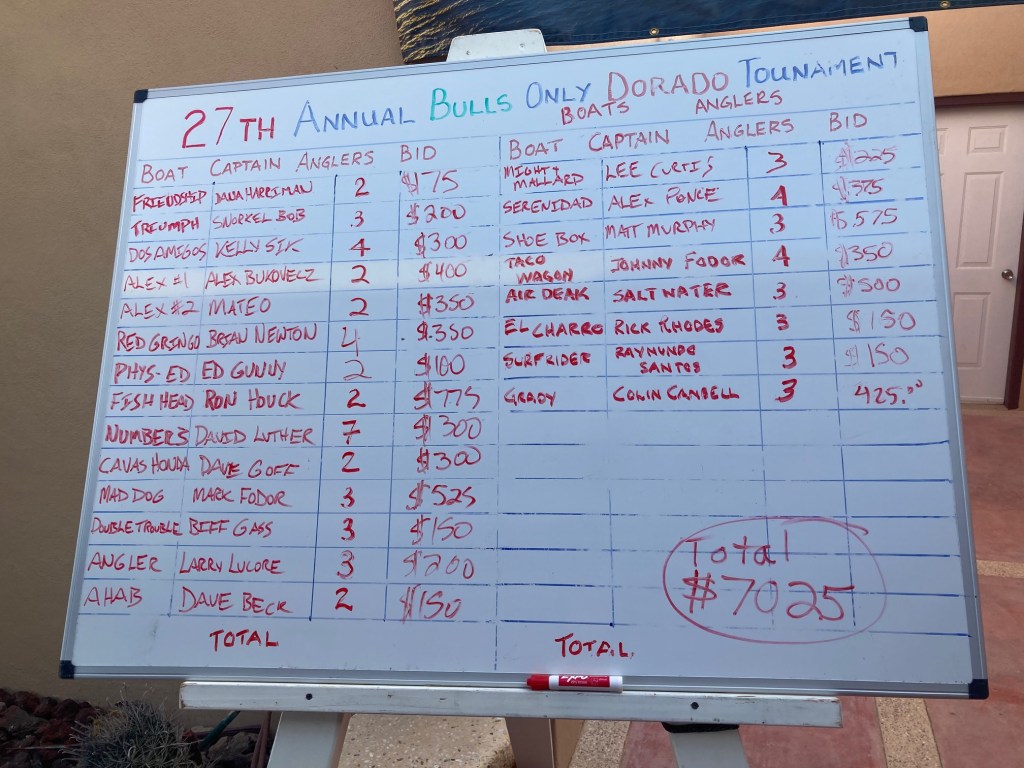 27TH ANNUAL BULLS ONLY DORADO TOUNAMENT
BOATS ANGLERS
BOAT CAPTAIN ANGLERS BID
FRIENDSHIP DANA HARRIMAN 2 $175
TREUMPH SNORKEL BOB 3 $200
DOS AMIGOS KELLY SIK 4 $300
ALEX #1 ALEX BUKOVECZ 2 $400
ALEX #2 MATEO 2 $350
RED GRINGO BRIAN NEWTON 4 $350
PHYS-ED ED GUNNY 2 $100
FISH HEAD RON HOUCK 2 $775
NUMBER 3 DAVID LUTHER 7 $300
CAVAS HONDA DAVE GOFF 2 $300
MAD DOG MARK FODOR 3 $525
DOUBLE TROUBLE BIFF GASS 3 $150
ANGLER LARRY LUCORE 3 $200
AHAB DAVE BECK 2 $150
TOTAL
BOAT CAPTAIN ANGLERS BID
MIGHTY MALLARD LEE CURTIS 3 $225
SERENIDAD ALEX PONCE 4 $375
SHOE BOX MATT MURPHY 3 $575
TACO WAGON JOHNNY FODOR 4 $350
AIR DEAK SALTWATER 3 $500
EL CHARRO RICK RHODES 3 $150
SURFRIDER RAYMUNDO SANTOS 3 $150
GRADY COLIN CANDELL 3 425.00
Total
$7025
TOTAL
EXPO